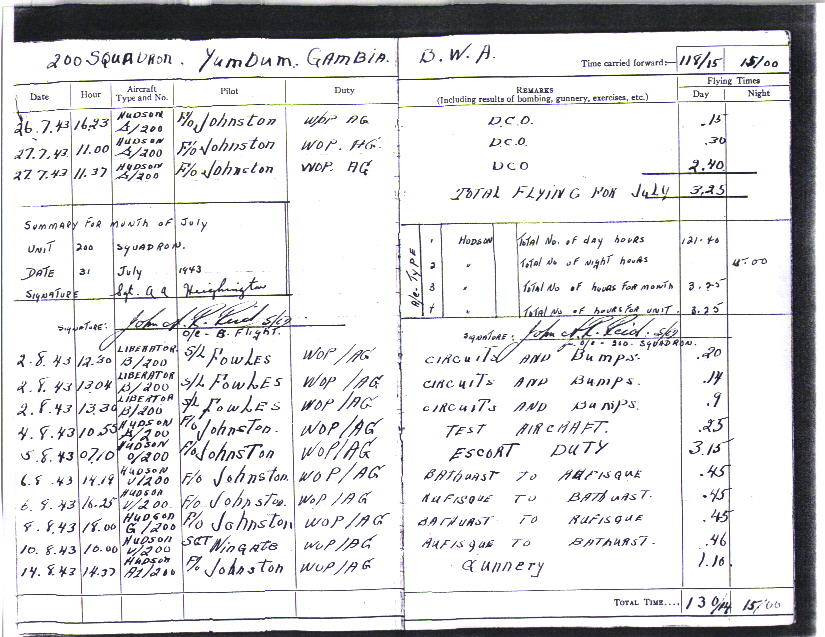 200 SQUADRON. YUMBUM. GAMBIA. B.W.A. Time carried forward:— 118/15 15/00
Date Hour Aircraft Type and No. Pilot Duty REMARKS (Including results of bombing, gunnery, exercises, etc.) Flying Times Day Night
26.7.43 16.23 HUDSON /200 F/o JOHNSTON W/OP AG D.C.O. .15
27.7.43 11.00 HUDSON /200 F/o JOHNSTON WOP. AG. D.C.O. .30
27.7.43 11.37 HUDSON /200 F/o JOHNSTON WOP. AG DCO 2.40
TOTAL FLYING FOR July 3.25
SUMMARY FOR MONTH OF July
UNIT 200 SQUADRON.
DATE 31 July 1943
SIGNATURE Sgt. A A Heighington
A/c. TYPE
1 HUDSON TOTAL No. of day hours 121.40
2 " TOTAL No of night hours 15.00
3 " TOTAL No. of hours for month 3.25
4 " TOTAL No. of hours for unit. 3.25
SIGNATURE: John A. R. Reid S/Ldr O/C - B. Flight.
SIGNATURE: John A. R. Reid. S/Ldr O/C - 200. SQUADRON.
2.8.43 12.30 LIBERATOR B/200 S/L FOWLES WOP/AG CIRCUITS AND BUMPS. .20
2.8.43 13.04 LIBERATOR B/200 S/L FOWLES WOP/AG CIRCUITS AND BUMPS. .14
2.8.43 13.30 LIBERTOR B/200 S/L FOWLES WOP/AG CIRCUITS AND BUMPS. .9
4.8.43 10.55 HUDSON /200 F/o JOHNSTON. WOP/AG TEST AIRCRAFT. .25
5.8.43 07.10 HUDSON O/200 F/o JOHNSTON WOP/AG ESCORT DUTY 3.15
6.8.43 14.19 HUDSON V/200 F/o JOHNSTON. WOP/AG BATHURST TO RUFISQUE .45
6.8.43 16.25 HUDSON V/200 F/o JOHNSTON. WOP/AG RUFISQUE TO BATHURST. .45
8.8.43 18.00 HUDSON G/200 F/o JOHNSTON WOP/AG BATHURST TO RUFISQUE .45
10.8.43 10.00 HUDSON V/200 SGT WINGATE WOP/AG RUFISQUE TO BATHURST. .46
14.8.43 14.37 HUDSON A1/200 F/o JOHNSTON WOP/AG GUNNERY 1.10
TOTAL TIME.... 130/14 15/00